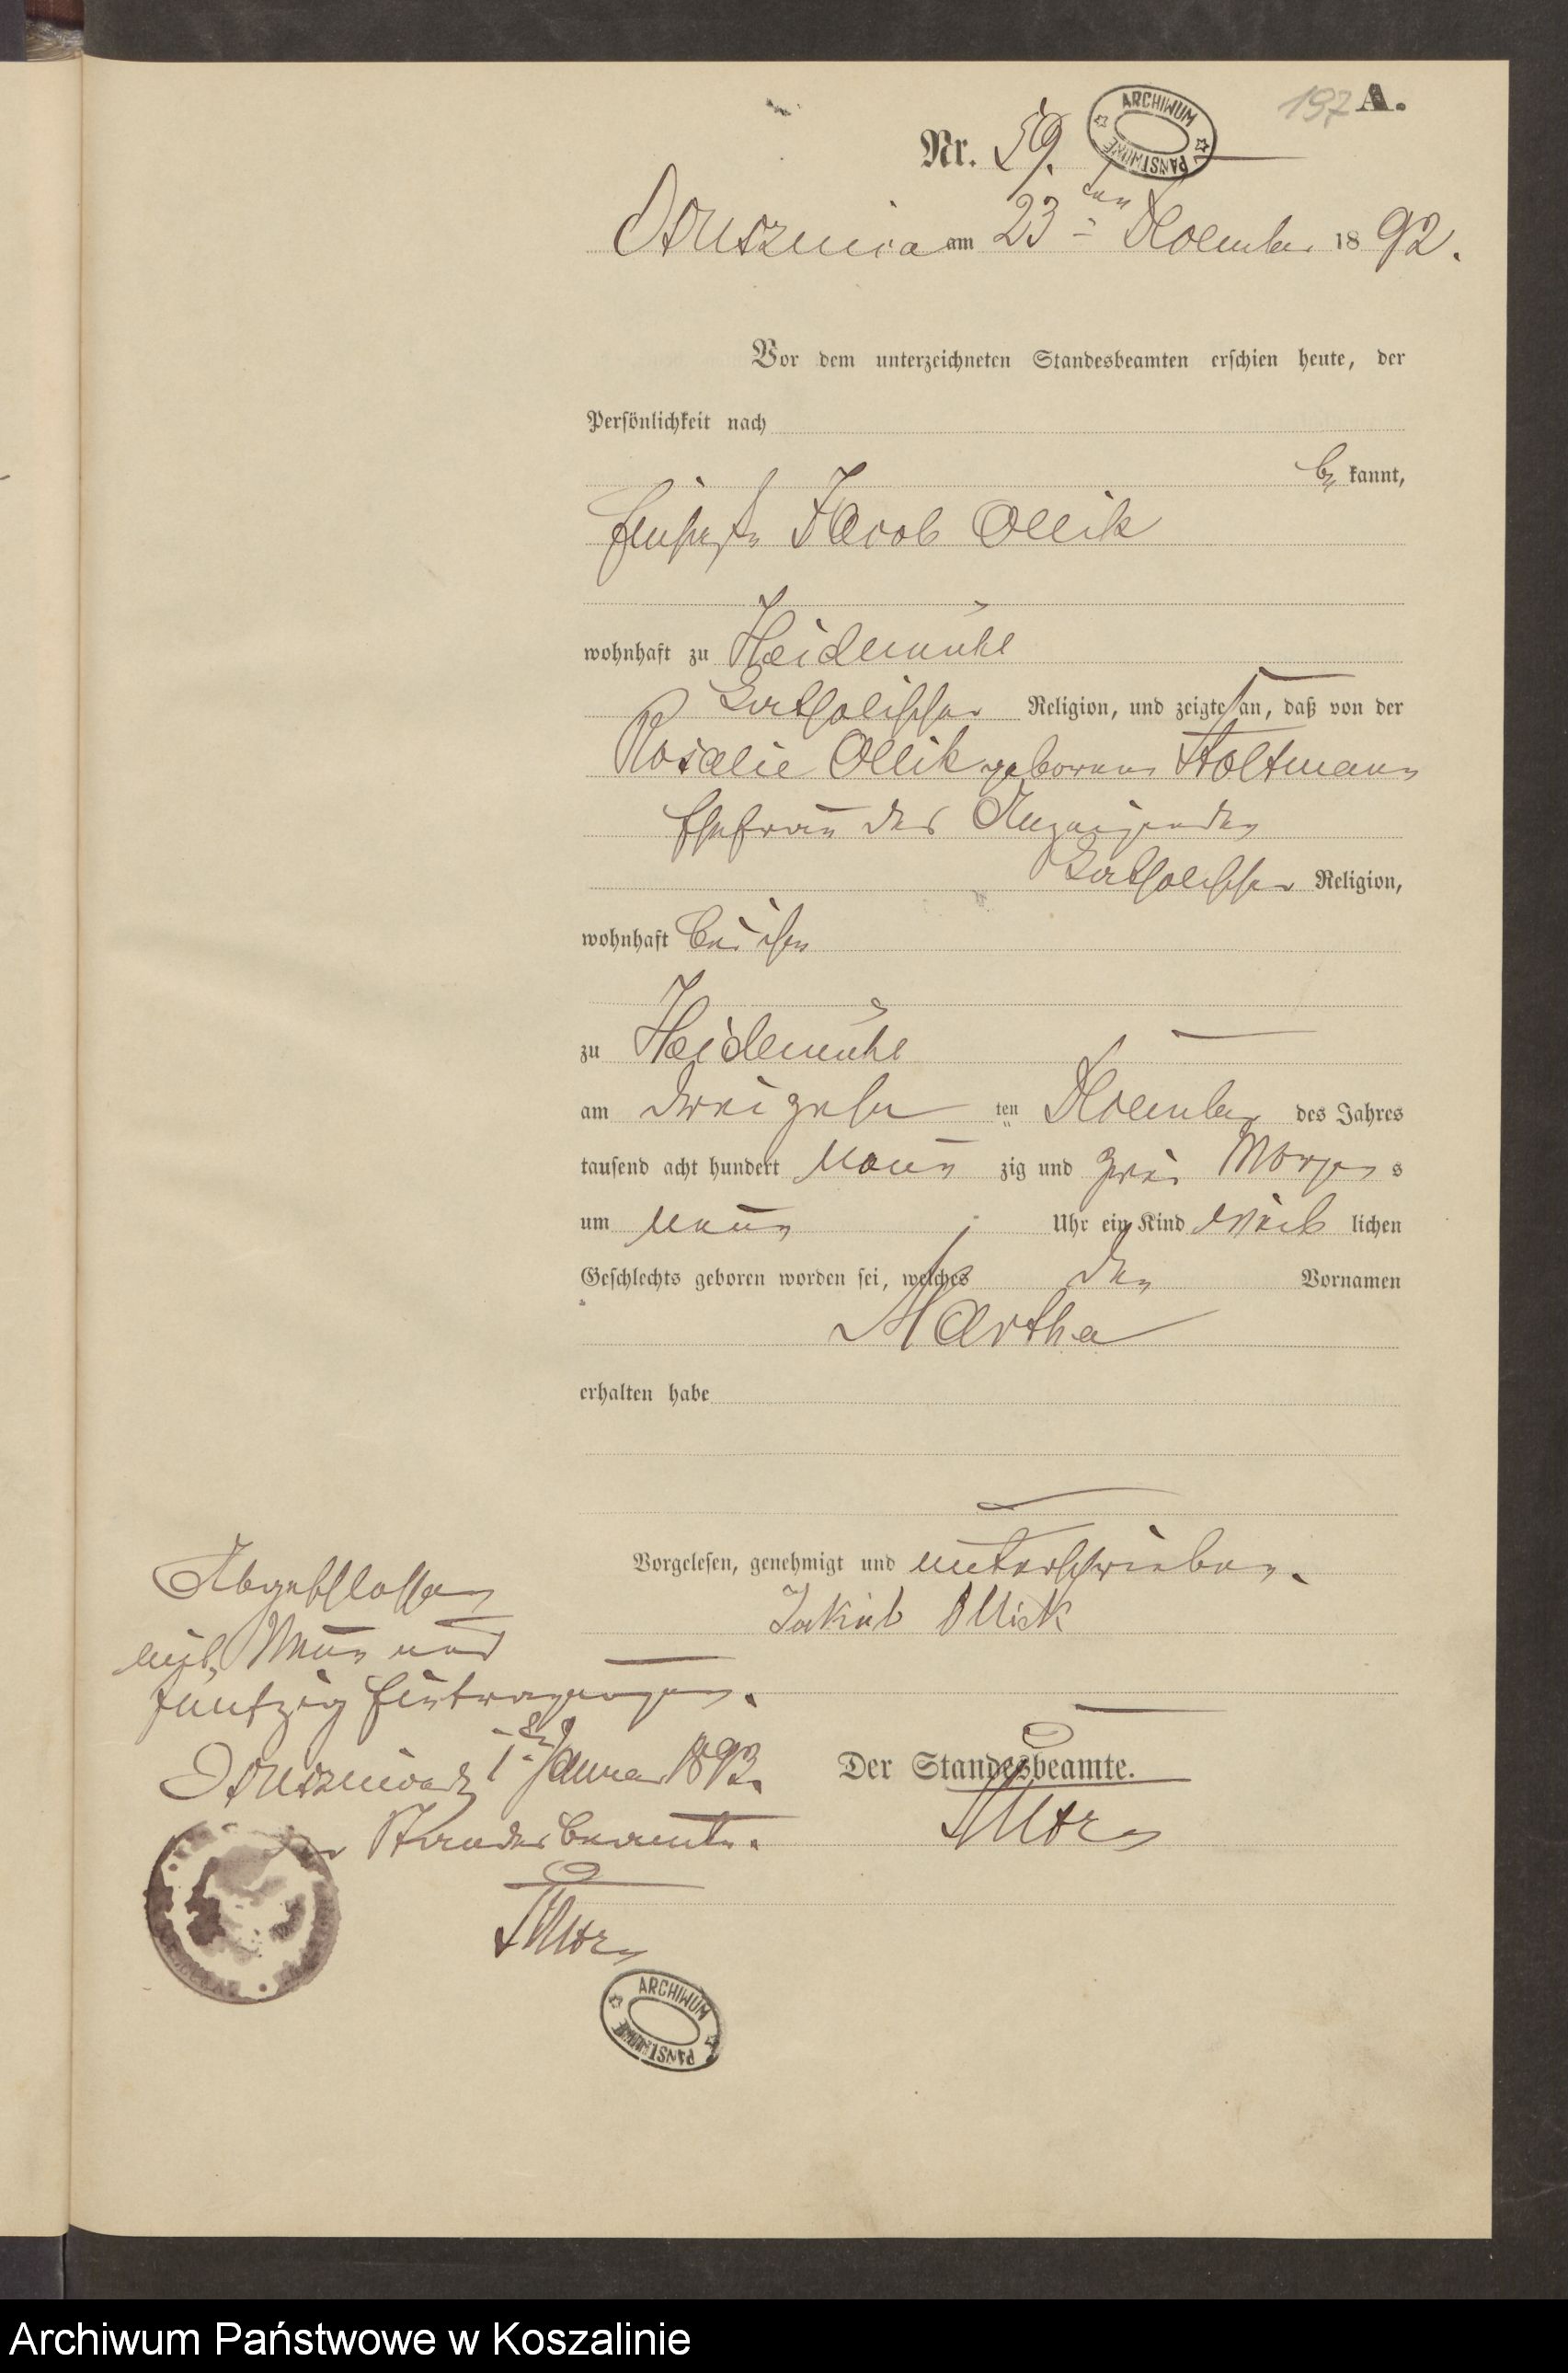 197 A.
Nr. 59.
ARCHIWUM PAŃSTWOWE
Ossusznica am 23ten December 1892.
Vor dem unterzeichneten Standesbeamten erschien heute, der
Persönlichkeit nach
be kannt,
Jacob Ollik
wohnhaft zu Heidemühl
katholischer Religion, und zeigte an, daß von der
Rosalie Ollik geborenen Stoltmann
Ehefrau des Anzeigenden
katholischer Religion,
wohnhaft bei ihm
zu Heidemühl
am dreizehn ten December des Jahres
tausend acht hundert neun zig und zwei Morgen s
um neun Uhr ein Kind weib lichen
Geschlechts geboren worden sei, welches den Vornamen
Martha
erhalten habe
Vorgelesen, genehmigt und unterschrieben.
Jakub Ollik
Der Standesbeamte.
Abgeschlossen
mit Neun und
fünfzig Eintragungen.
Ossusznica d 1ten Januar 1893.
Der Standesbeamte.
ARCHIWUM PAŃSTWOWE
Archiwum Państwowe w Koszalinie